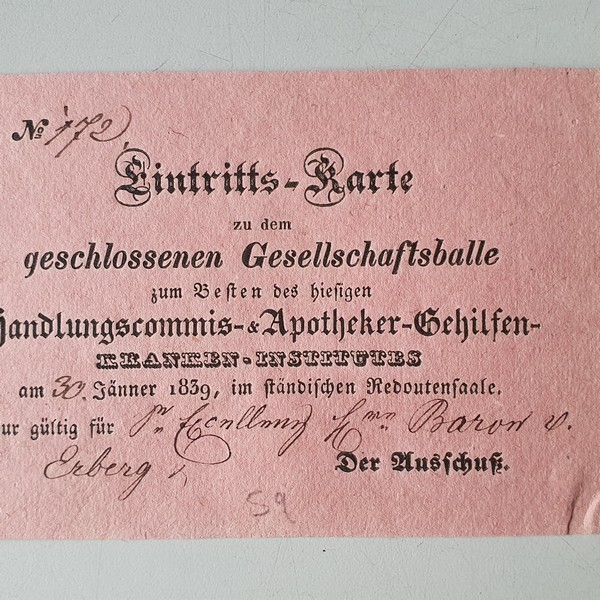 No 172
Eintritts-Karte
zu dem
geschlossenen Gesellschaftsballe
zum Besten des hiesigen
Handlungscommis-&Apotheker-Gehilfen-
KRANKEN-INSTITUTES
am 30. Jänner 1839, im ständischen Redoutensaale.
ur gültig für Sr Excellenz Hrrn Baron v.
Erberg
Der Ausschuß.
59